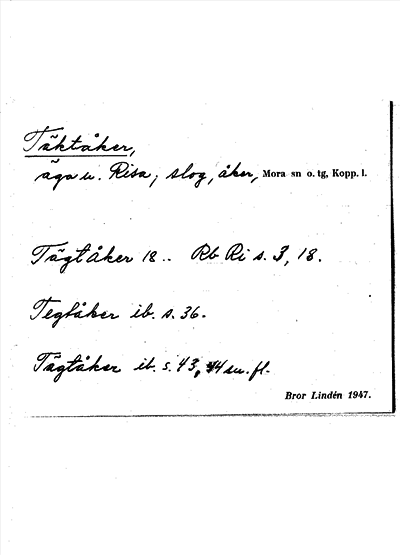 Täktåker,
äga u. Risa; slog, åker, Mora sn o. tg, Kopp. l.
Tägtåker 18.. Rb Ri s. 3, 18.
Tegtåker ib. s. 36.
Tägtåker ib. s. 43, 44 m. fl.
Bror Lindén 1947.